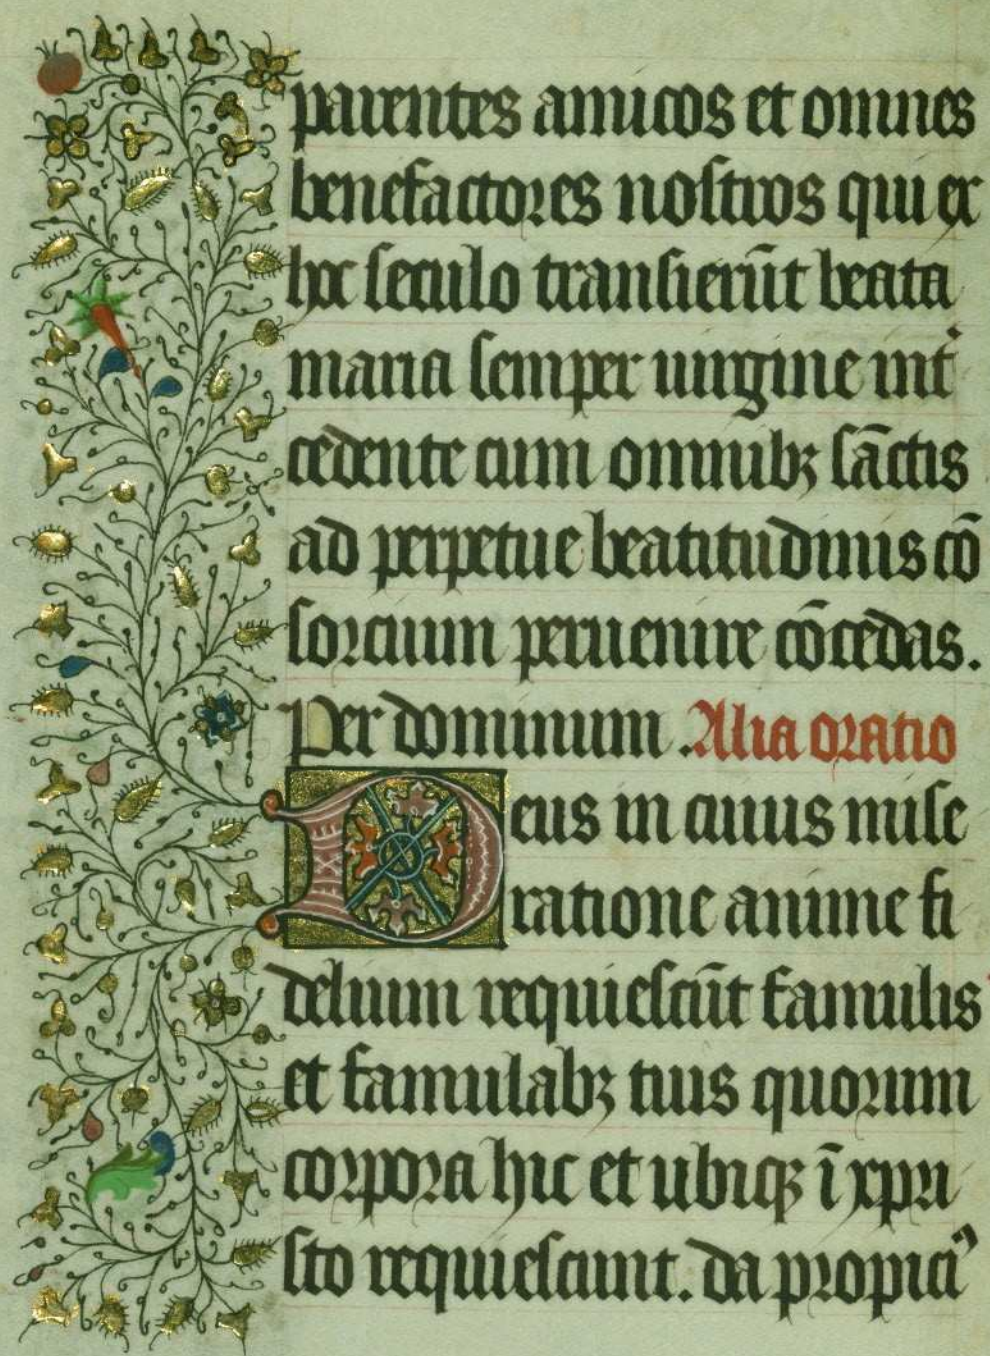 parentes amicos et omnes
benefactores nostros qui ex
hoc seculo transierūt beata
maria semper uirgine int͛
cedente cum omnibꝫ sāctis
ad perpetue beatitudinis cō
sorcium peruenire cōcedas.
Per dominum. Alia oratio
Deus in cuius mise
ratione anime fi
delium requiescūt famulis
et famulabꝫ tuis quorum
corpora hic et ubicqꝫ ī xpri
sto requiescunt. da propiciꝰ